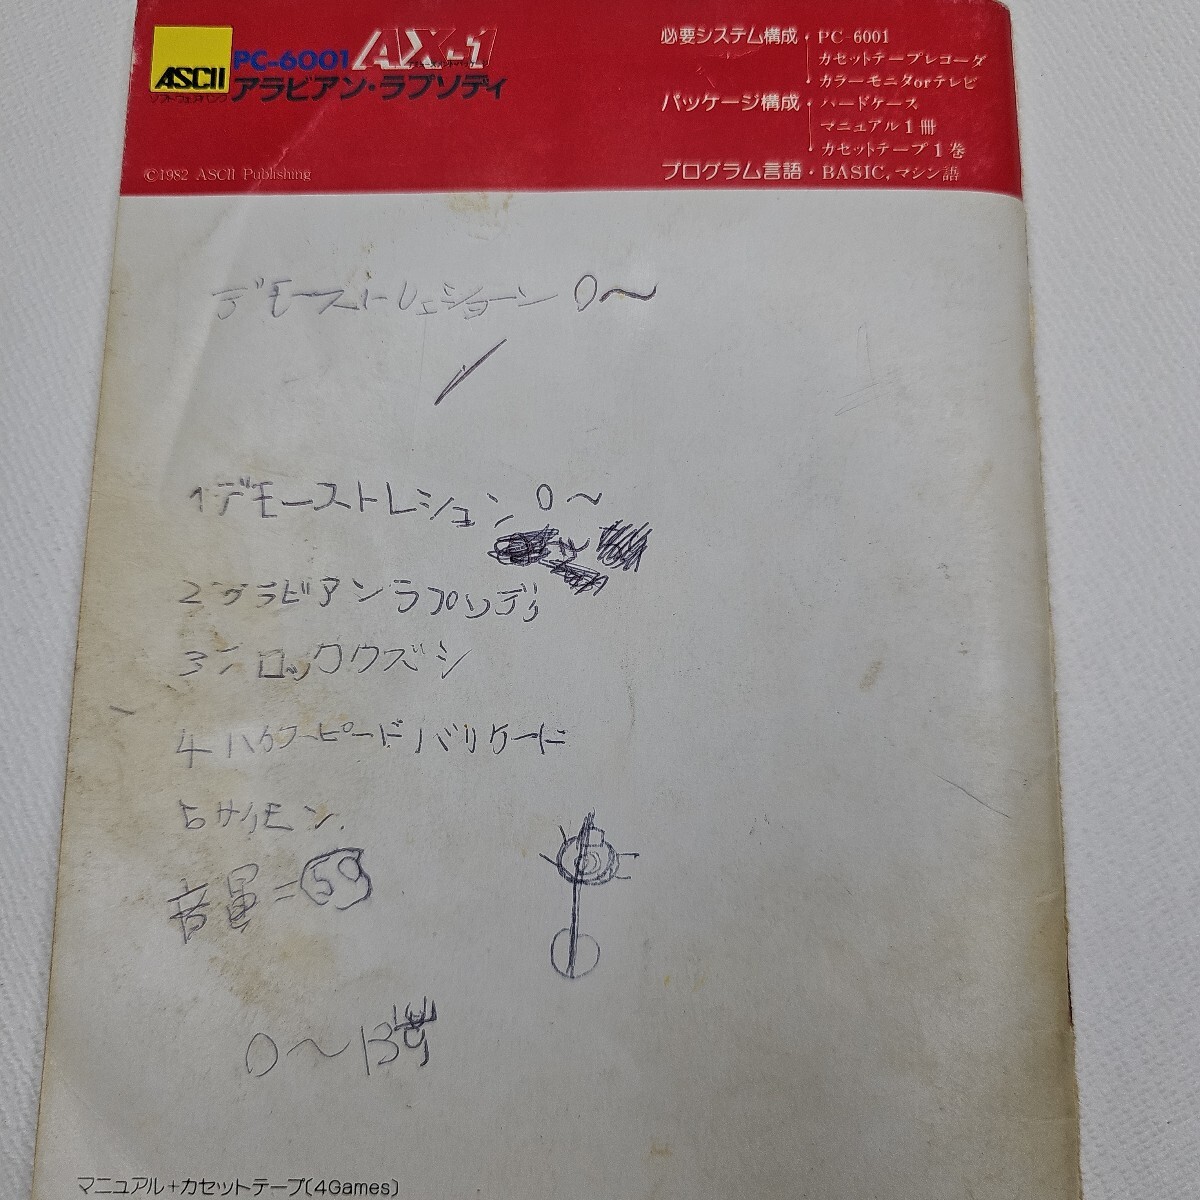 ASCII
ソフトウェアバンク
PC-6001 AX-1
アラビアン・ラプソディ
©1982 ASCII Publishing
必要システム構成・PC-6001
カセットテープレコーダ
カラーモニタorテレビ
パッケージ構成・ハードケース
マニュアル1冊
カセットテープ1巻
プログラム言語・BASIC,マシン語
デモーストレェション 0〜
1デモーストレション 0〜
2アラビアンラプソディ
3ブロッククズシ
4ハイスピードバリケード
5サイモン
音量=50
0〜13
マニュアル+カセットテープ(4Games)